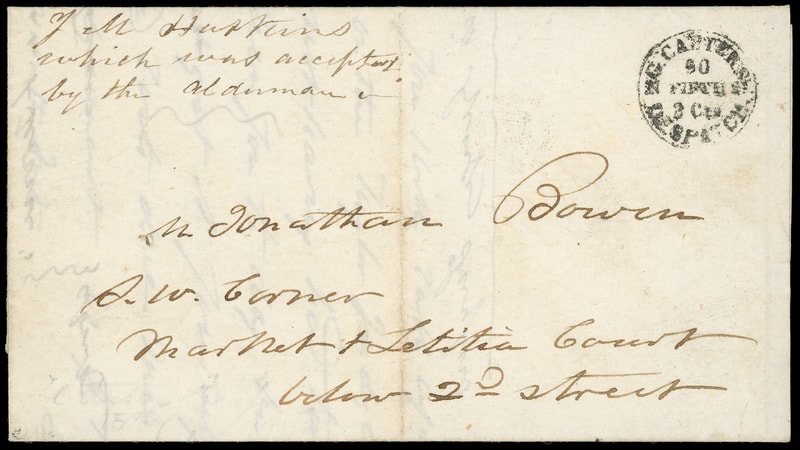 J M Hupkins
which was accepted
by the Alderman
G. CARTER'S
90
FIFTH
2 Cts
DESPATCH
Mr Jonathan Bowen
S. W. Corner
Market & Letitia Court
below 2D street